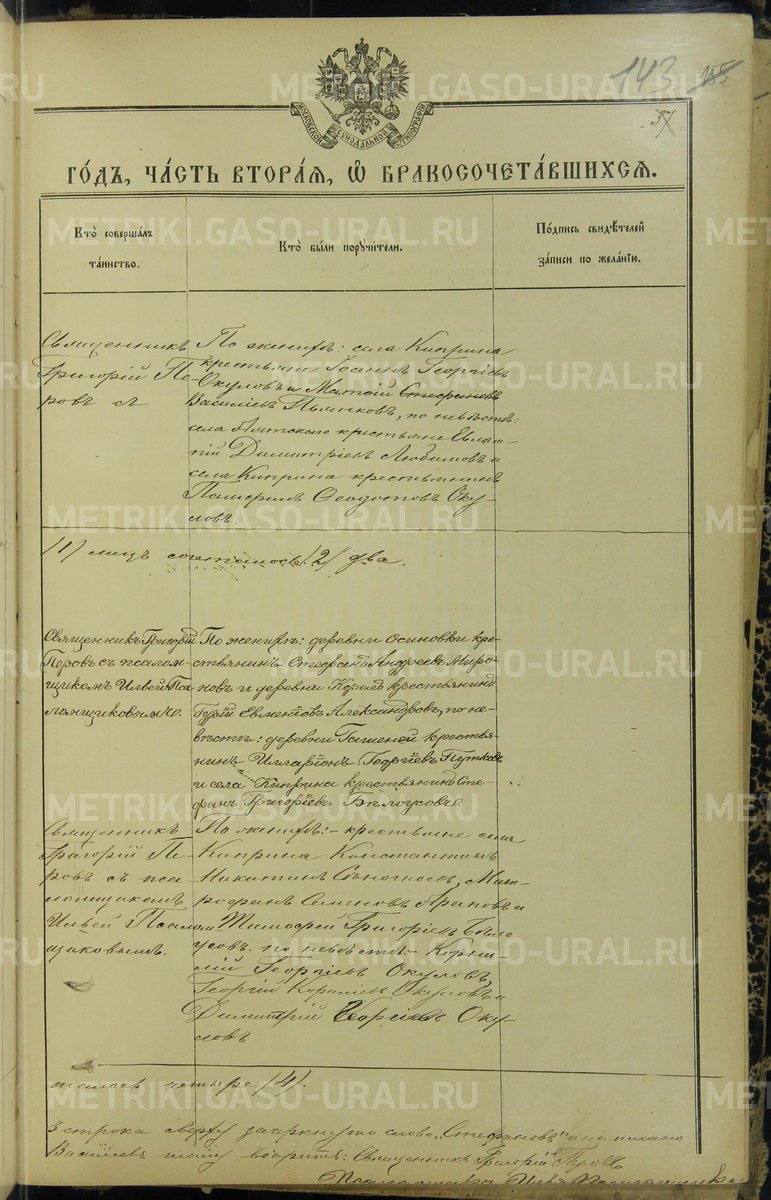 143 155
37
МОСКОВСКОЙ СѴНОДАЛЬНОЙ ТИПОГРАФІИ
ГО́ДЪ, ЧА́СТЬ ВТОРА́Я, Ѡ҆ БРАКОСОЧЕТА́ВШИХСЯ.
Кто̀ соверша́лъ та́инство.
Кто̀ бы́ли порꙋчи́тели.
По́дпись свидѣ́телей за́писи по жела́нію.
Священникъ
Григорій Пе-
ровъ съ
По женихѣ: села Киприна
крестьяне Іоаннъ Георгіевъ
Окуловъ и Матѳій Стефановъ
Василіевъ Пьянковъ, по невѣстѣ:
села Аятскаго крестьяне Евлам-
пій Димитріевъ Любимовъ и
села Киприна крестьянинъ
Ѳеодотовъ Оку-
ловъ.
/1/ лицъ состоялось /2/ два.
Священникъ Григорій
Перовъ съ псалом-
щикомъ Ильей Пса-
ломщиковымъ.
По женихѣ: деревни Осиновки кре-
стьянинъ Стефанъ Андреевъ Миро-
новъ и деревни Корелъ крестьянинъ
Евменіевъ Александровъ, по не-
вѣстѣ: деревни крестья-
нинъ Илларіонъ Георгіевъ
и села Киприна крестьянинъ Сте-
фанъ Григоріевъ Бѣлоусовъ.
Священникъ
Григорій Пе-
ровъ съ пса-
ломщикомъ
Ильей Псалом-
щиковымъ.
По женихѣ: - крестьяне села
Киприна Константинъ
Никитинъ Мит-
рофанъ Семеновъ Араповъ и
Тимофей Григоріевъ Бѣло-
усовъ. по невѣстѣ: - Корни-
лій Георгіевъ Окуловъ,
Георгій Корниліевъ Окуловъ и
Димитрій Георгіевъ Оку-
ловъ
тоялось четыре /4/.
3 строка сверху зачеркнуто слово "Стефановъ" и написано
Василіевъ тому вѣрить: Священникъ Григорій Перовъ
Псаломщикъ Илья Псаломщиковъ
METRIKI.GASO-URAL.RU